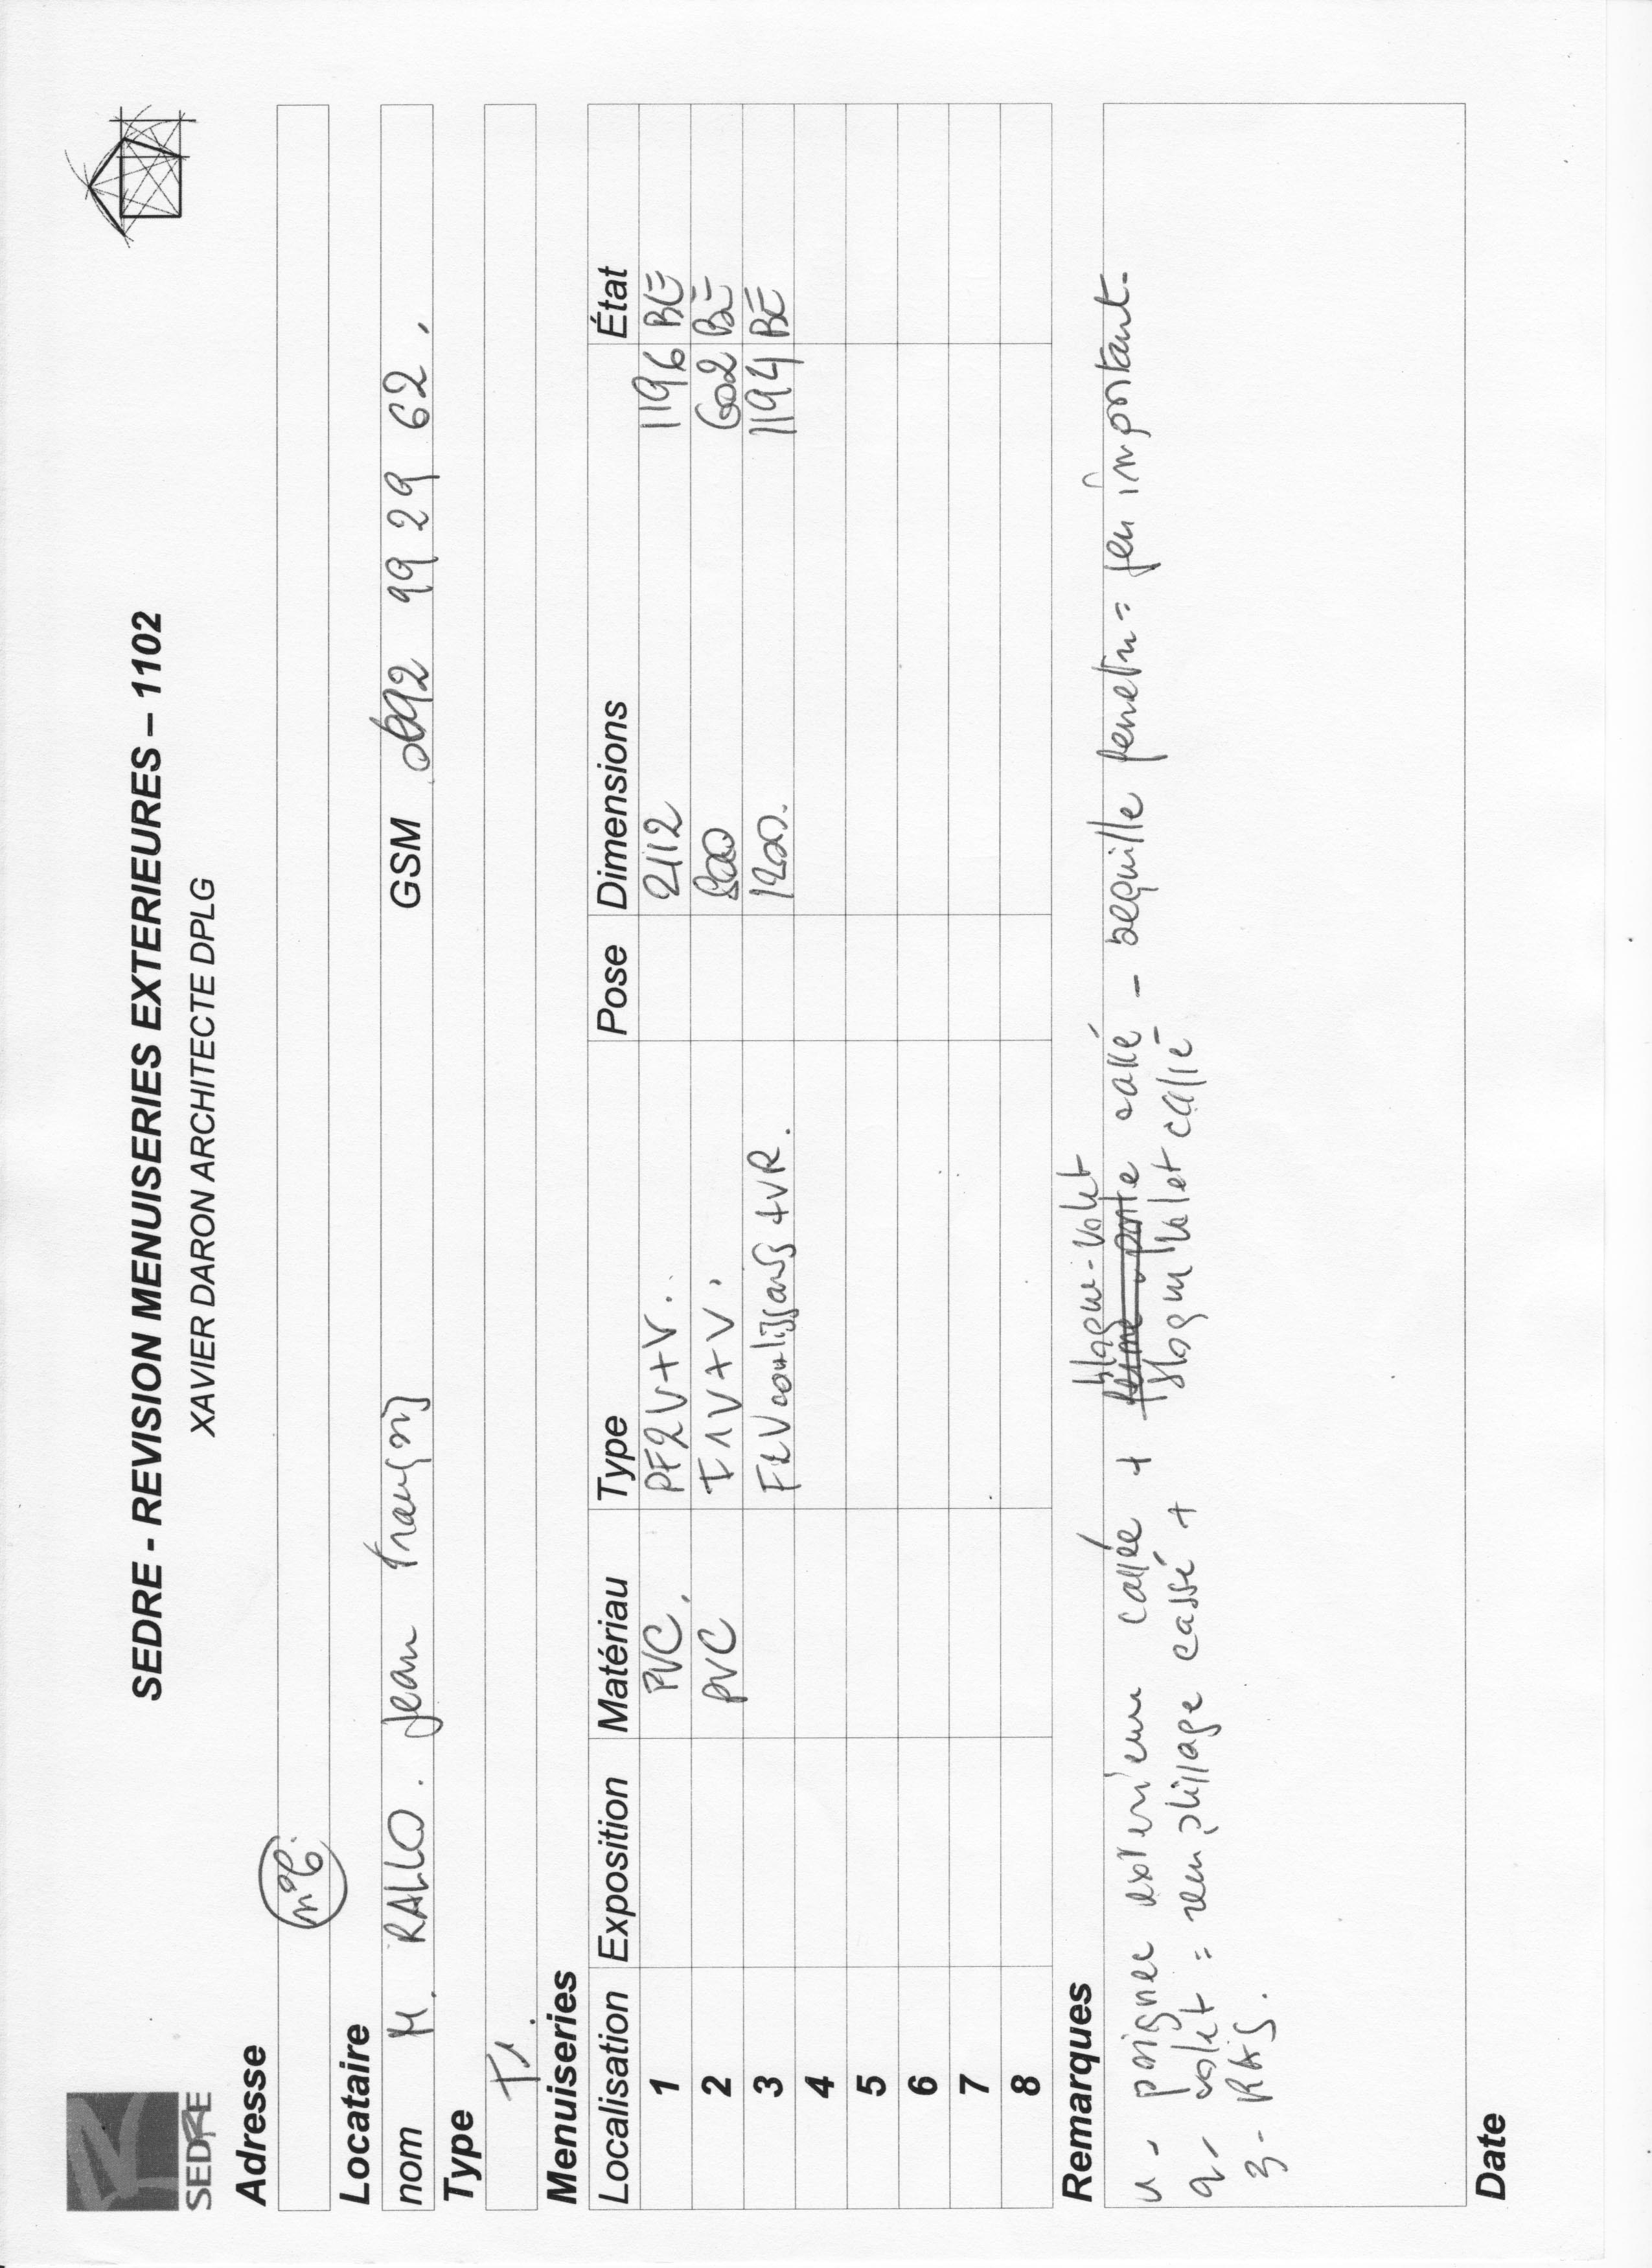 SEDRE - REVISION MENUISERIES EXTERIEURES – 1102
XAVIER DARON ARCHITECTE DPLG
SEDRE
Adresse
n°6.
Locataire
nom M. RALLO. Jean François GSM 0692 99 29 62.
Type
T1.
Menuiseries
Localisation Exposition Matériau Type Pose Dimensions État
1 PVC. PF2V+V. 2112 1196 BE
2 PVC F1V+V. 800 602 BE
3 F2V coulissant +VR. 1200. 1194 BE
4
5
6
7
8
Remarques
bloque-volet
1- poignee exterieure cassée + cassé - bequille fenetre = jeu important.
2- volet = remplissage cassé + bloque volet cassé
3- RAS.
Date